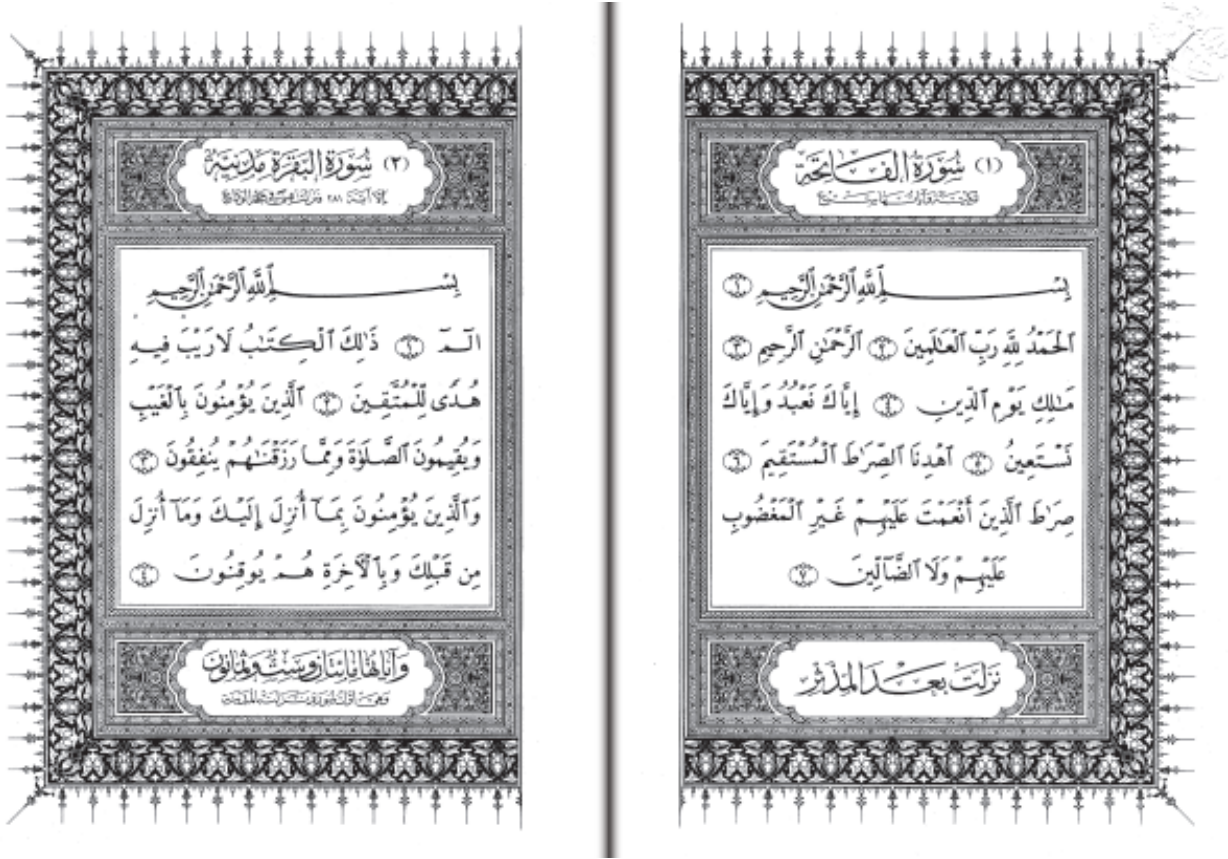 (١) سُورَةُ الفَاتِحَةِ
مَكِيَّة وَآيَاتُهَا سَبْع
بِسْمِ ٱللَّهِ ٱلرَّحْمَٰنِ ٱلرَّحِيمِ ١
ٱلْحَمْدُ لِلَّهِ رَبِّ ٱلْعَٰلَمِينَ ٢ ٱلرَّحْمَٰنِ ٱلرَّحِيمِ ٣
مَٰلِكِ يَوْمِ ٱلدِّينِ ٤ إِيَّاكَ نَعْبُدُ وَإِيَّاكَ
نَسْتَعِينُ ٥ ٱهْدِنَا ٱلصِّرَٰطَ ٱلْمُسْتَقِيمَ ٦
صِرَٰطَ ٱلَّذِينَ أَنْعَمْتَ عَلَيْهِمْ غَيْرِ ٱلْمَغْضُوبِ
عَلَيْهِمْ وَلَا ٱلضَّآلِّينَ ٧
نَزَلَتْ بَعْدَ المُدَّثِّر
(٢) سُورَةُ البَقَرَةِ مَدَنِيَّة
إلا آية ٢٨١ فنزلت بمنى في حجة الوداع
بِسْمِ ٱللَّهِ ٱلرَّحْمَٰنِ ٱلرَّحِيمِ
الٓمٓ ١ ذَٰلِكَ ٱلْكِتَٰبُ لَا رَيْبَ فِيهِ
هُدًى لِّلْمُتَّقِينَ ٢ ٱلَّذِينَ يُؤْمِنُونَ بِٱلْغَيْبِ
وَيُقِيمُونَ ٱلصَّلَوٰةَ وَمِمَّا رَزَقْنَٰهُمْ يُنفِقُونَ ٣
وَٱلَّذِينَ يُؤْمِنُونَ بِمَآ أُنزِلَ إِلَيْكَ وَمَآ أُنزِلَ
مِن قَبْلِكَ وَبِٱلْءَاخِرَةِ هُمْ يُوقِنُونَ ٤
وآياتها مائتان وست وثمانون
وهي أول سورة نزلت بالمدينة